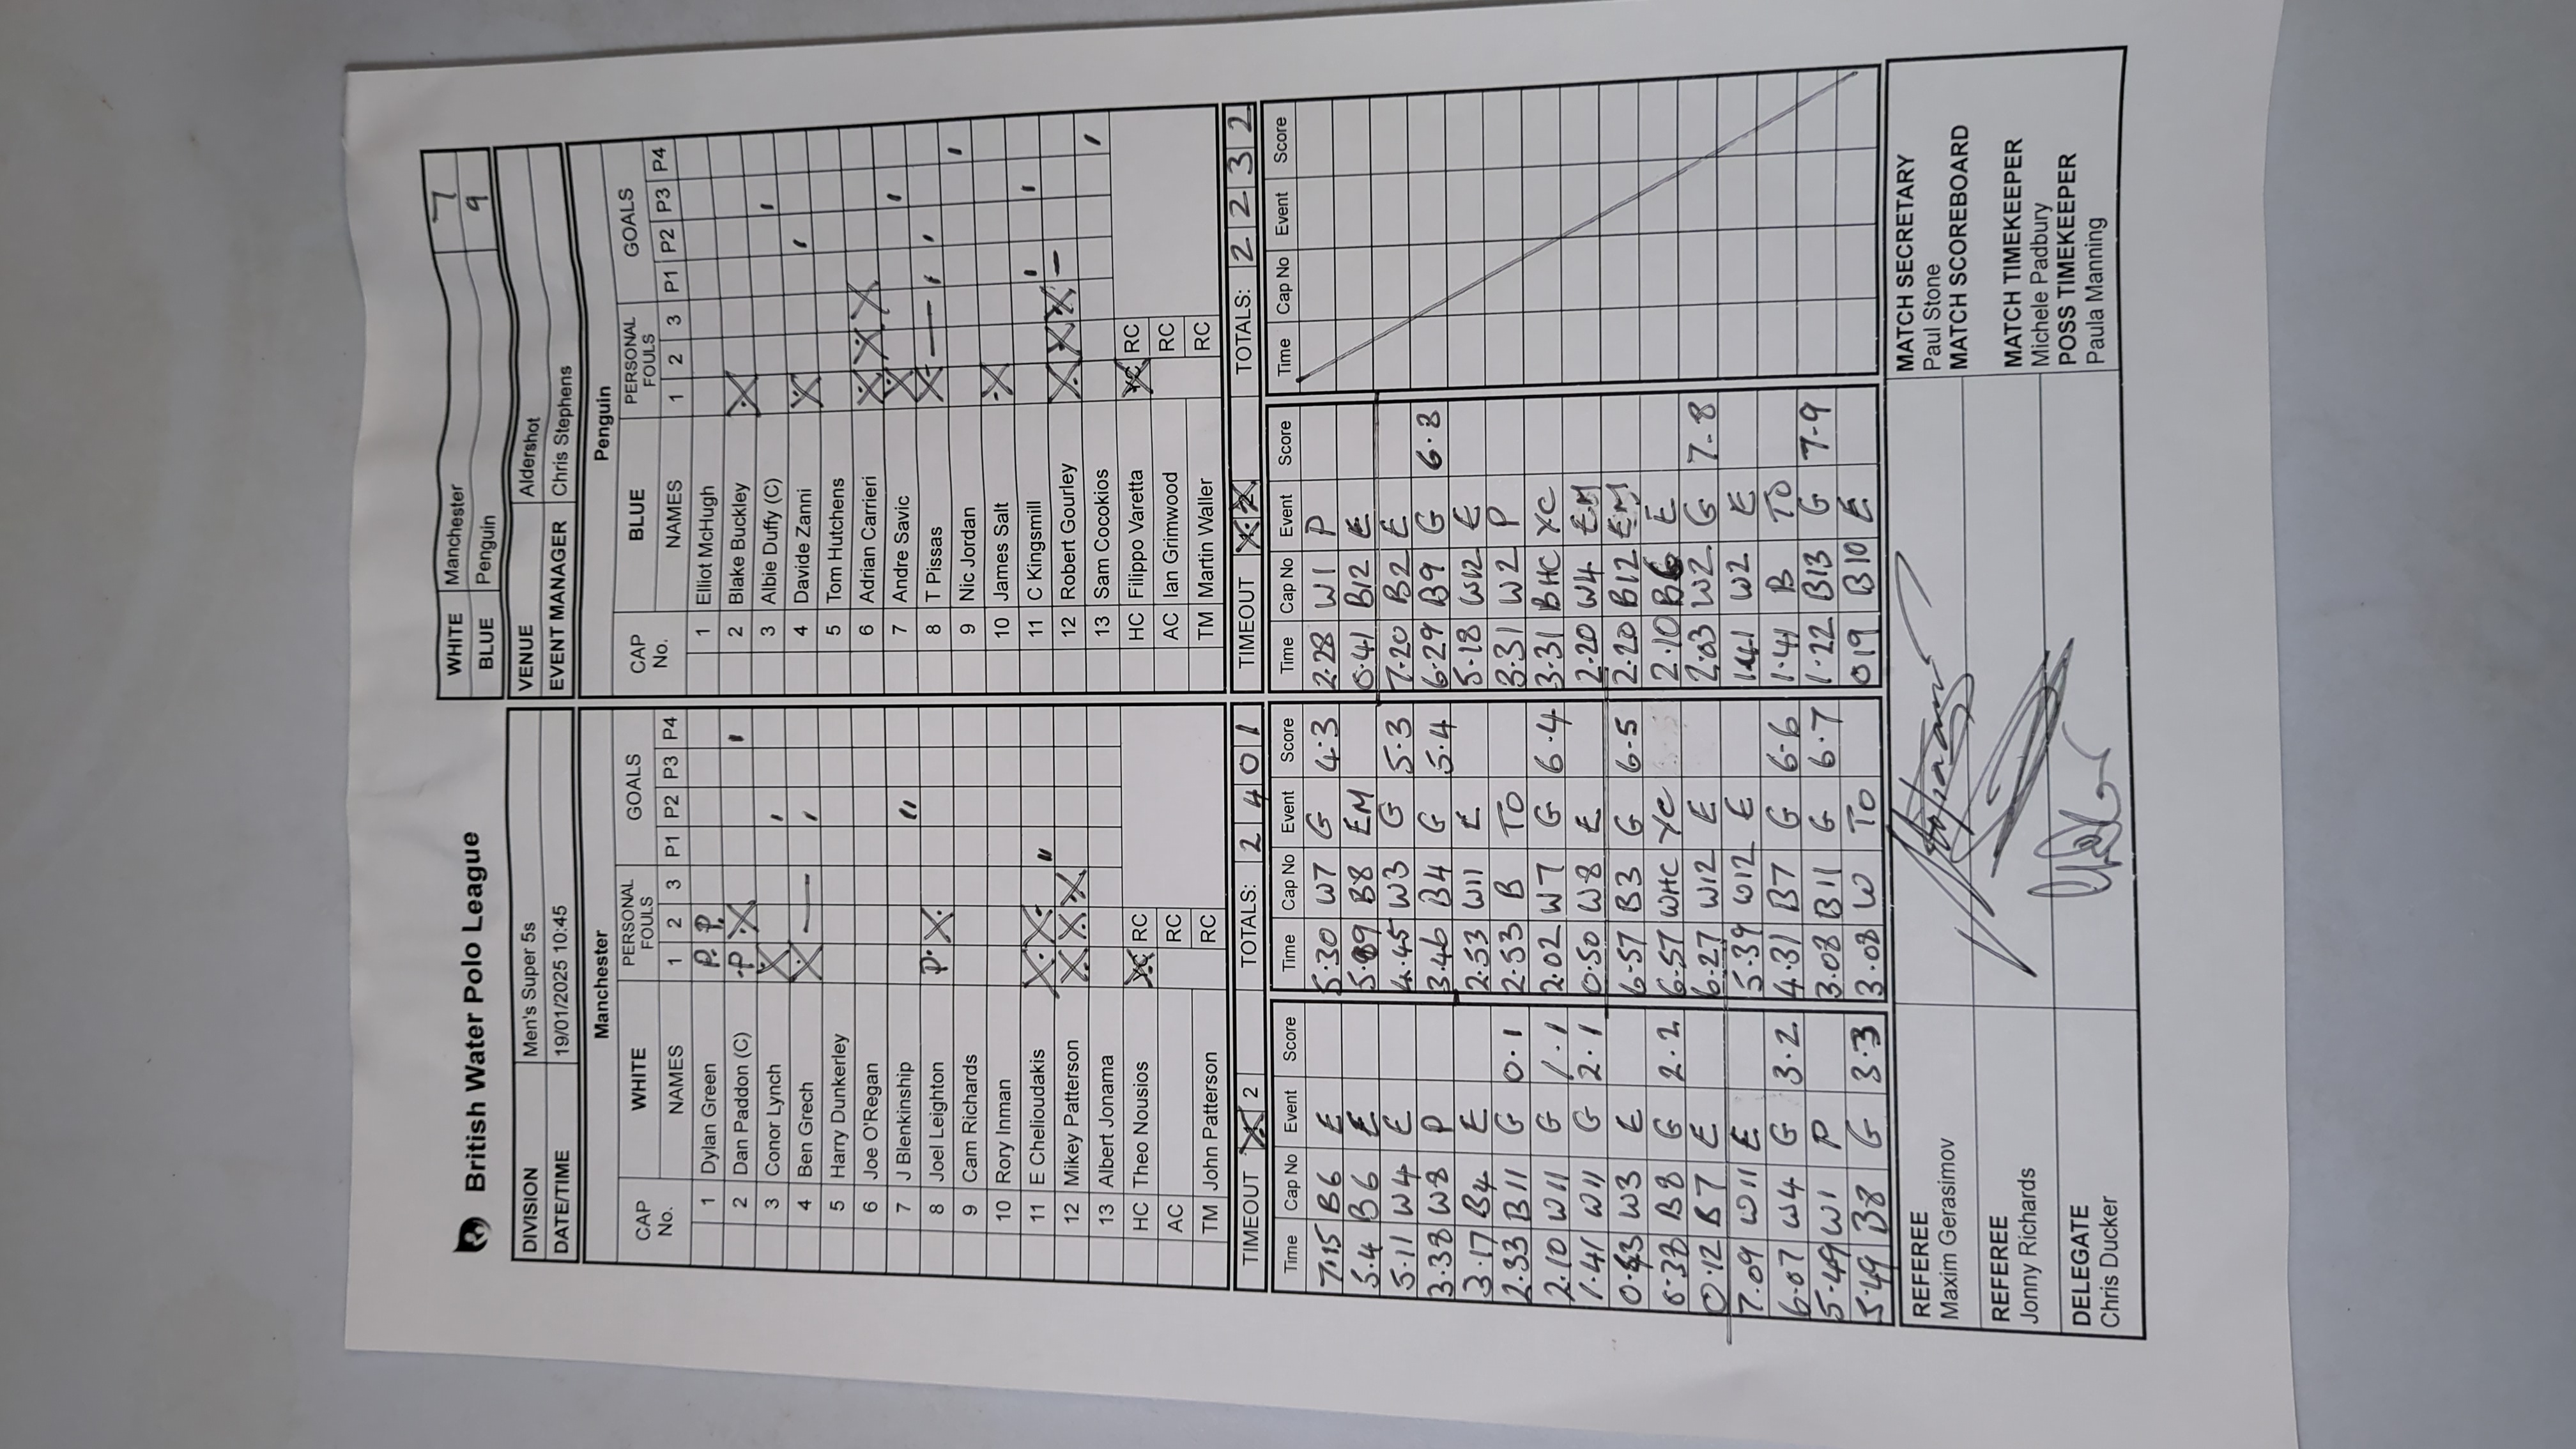 British Water Polo League
WHITE Manchester 7
BLUE Penguin 9
DIVISION Men's Super 5s
DATE/TIME 19/01/2025 10:45
VENUE Aldershot
EVENT MANAGER Chris Stephens
Manchester
CAP No. WHITE NAMES PERSONAL FOULS 1 2 3 GOALS P1 P2 P3 P4
1 Dylan Green P. P.
2 Dan Paddon (C) P X I
3 Conor Lynch X I
4 Ben Grech X — I
5 Harry Dunkerley
6 Joe O'Regan
7 J Blenkinship II
8 Joel Leighton P. X
9 Cam Richards
10 Rory Inman
11 E Chelioudakis X X II
12 Mikey Patterson X X X
13 Albert Jonama
HC Theo Nousios YC RC
AC RC
TM John Patterson RC
TIMEOUT X 2 TOTALS: 2 4 0 1
Penguin
CAP No. BLUE NAMES PERSONAL FOULS 1 2 3 GOALS P1 P2 P3 P4
1 Elliot McHugh
2 Blake Buckley X
3 Albie Duffy (C) I
4 Davide Zanni X I
5 Tom Hutchens
6 Adrian Carrieri X X X
7 Andre Savic X I
8 T Pissas X — I I
9 Nic Jordan I
10 James Salt X
11 C Kingsmill I I
12 Robert Gourley X X X —
13 Sam Cocokios I
HC Filippo Varetta YC RC
AC Ian Grimwood RC
TM Martin Waller RC
TIMEOUT X X TOTALS: 2 2 3 2
Time Cap No Event Score
7.15 B6 E
5.4 B6 E
5.11 W4 E
3.38 W8 P
3.17 B4 E
2.33 B11 G 0.1
2.10 W11 G 1.1
1.41 W11 G 2.1
0.43 W3 E
0.38 B8 G 2.2
0.12 B7 E
7.09 W11 E
6.07 W4 G 3.2
5.49 W1 P
5.49 B8 G 3.3
Time Cap No Event Score
5.30 W7 G 4.3
B8 EM
4.45 W3 G 5.3
3.46 B4 G 5.4
2.53 W11 E
2.53 B TO
2.02 W7 G 6.4
0.50 W8 E
6.57 B3 G 6.5
6.57 WHC YC
6.27 W12 E
5.39 W12 E
4.31 B7 G 6.6
3.08 B11 G 6.7
3.08 W TO
Time Cap No Event Score
2.28 W1 P
0.41 B12 E
7.20 B2 E
6.29 B9 G 6.8
5.18 W12 E
3.31 W2 P
3.31 BHC YC
2.20 W4 EM
2.20 B12 EM
2.10 B6 E
2.03 W2 G 7-8
1.41 W2 E
1.41 B TO
1.22 B13 G 7-9
019 B10 E
Time Cap No Event Score
REFEREE
Maxim Gerasimov
REFEREE
Jonny Richards
DELEGATE
Chris Ducker
MATCH SECRETARY
Paul Stone
MATCH SCOREBOARD
MATCH TIMEKEEPER
Michele Padbury
POSS TIMEKEEPER
Paula Manning